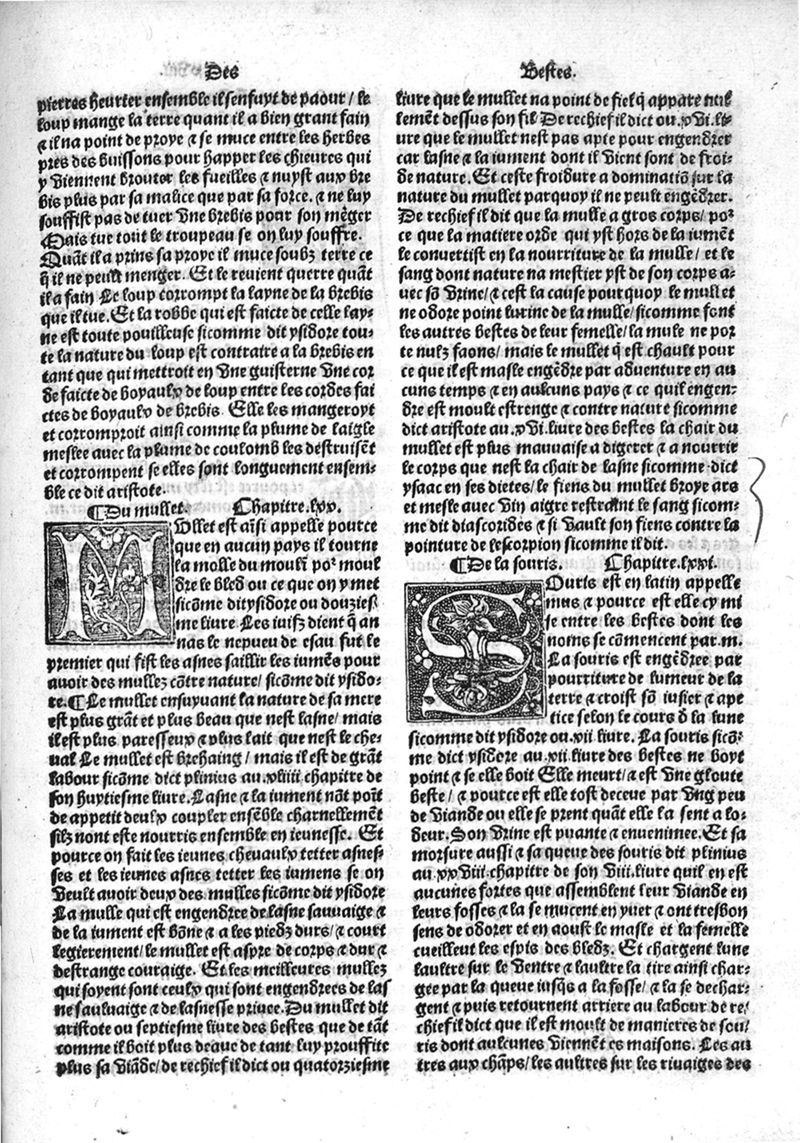 Des
Bestes.
pierres heurter ensemble il senfuyt de paour / le
loup mange la terre quant il a bien grant fain
⁊ il na point de proye ⁊ se muce entre les herbes
pres des buissons pour happer les chieures qui
y viennent brouter les fueilles ⁊ nuyst aux bre
bis plus par sa malice que par sa force. ⁊ ne luy
souffist pas de tuer vne brebis pour son mēger
Mais tue tout le troupeau se on luy souffre.
Quāt il a prins sa proye il muce soubz terre ce
q̄ il ne peult menger. Et le reuient querre quāt
il a fain Le loup corrompt la layne de la brebis
que il tue. Et la robbe qui est faicte de celle lay-
ne est toute pouilleuse sicomme dit ysidore tou-
te la nature du loup est contraire a la brebis en
tant que qui mettroit en vne guisterne vne cor
de faicte de boyaulx de loup entre les cordes fai
ctes de boyaulx de brebis Elle les mangeroyt
et corromproit ainsi comme la plume de laigle
meslee auec la plume de coulomb les destruisēt
et corrompent se elles sont longuement ensem-
ble ce dit aristote.
¶Du mullet. Chapitre.lxx.
MVllet est aīsi appelle pource
que en aucun pays il tourne
la molle du moulī poꝛ moul
dre le bled ou ce que on y met
sicōme dit ysidore ou douzies
me liure Les iuifz dient q̄ an
nas le nepueu de esau fut le
premier qui fist les asnes saillir les iumēs pour
auoir des mullez cōtre nature / sicōme dit ysido-
re. ¶Le mullet ensuyuant la nature de sa mere
est plus grāt et plus beau que nest lasne / mais
il est plus paresseux ⁊ plus lait que nest le che-
ual Le mullet est brehaing / mais il est de grāt
labour sicōme dict plinius au.xliiii chapitre de
son huytiesme liure. Lasne ⁊ la iument nōt poīt
de appetit deulx coupler ensēble charnellemēt
silz nont este nourris ensemble en ieunesse. Et
pource on fait les ieunes cheuaulx tetter asnes-
ses et les ieunes asnes tetter les iumens se on
veult auoir deux des mulles sicōme dit ysidore
La mulle qui est engendree de lasne sauuaige ⁊
de la iument est bōne ⁊ a les piedz durs / ⁊ court
legierement / le mullet est aspre de corps ⁊ dur ⁊
destrange couraige. Et les meilleures mullez
qui soyent sont ceulx qui sont engendrees de las
ne sauluaige ⁊ de lasnesse priuee. Du mullet dit
aristote ou septiesme liure des bestes que de tāt
comme il boit plus deaue de tant luy prouffite
plus sa viāde / de rechief il dict ou quatorziesme
liure que le mullet na point de fiel q̄ appare nul
lemēt dessus son fil De rechief il dict ou.xvi.li-
ure que le mullet nest pas apte pour engendrer
car lasne ⁊ la iument dont il vient sont de froi-
de nature. Et ceste froidure a dominatiō sur la
nature du mullet parquoy il ne peult engēdrer.
De rechief il dit que la mulle a gros corps / poꝛ
ce que la matiere orde qui yst hors de la iumēt
le conuertist en la nourriture de la mulle / et le
sang dont nature na mestier yst de son corps a-
uec sō vrine / ⁊ cest la cause pourquoy le mullet
ne odore point lurine de la mulle / sicomme font
les autres bestes de leur femelle / la mule ne por
te nulz faons / mais le mullet q̄ est chault pour
ce que il est masle engēdre par aduenture en au
cuns temps ⁊ en aulcuns pays ⁊ ce quil engen-
dre est moult estrenge ⁊ contre nature sicomme
dict aristote au.xvi.liure des bestes la chair du
mullet est plus mauuaise a digerer ⁊ a nourrir
le corps que nest la chair de lasne sicomme dict
ysaac en ses dietes / le fiens du mullet broye ars
et mesle auec vin aigre restraint le sang sicom-
me dit diascorides ⁊ si vault son fiens contre la
pointure de lescorpion sicomme il dit.
¶De la souris. Chapitre.lxxi.
SOuris est en latin appelle
mus ⁊ pource est elle cy mi
se entre les bestes dont les
noms se cōmencent par.m.
La souris est engēdree par
pourriture de lumeur de la
terre ⁊ croist sō iusier ⁊ ape
tice selon le cours d̄ la lune
sicomme dit ysidore ou.xii.liure. La souris sicō-
me dict ysidore au.xii.liure des bestes ne boyt
point ⁊ se elle boit Elle meurt / ⁊ est vne gloute
beste / ⁊ pource est elle tost deceue par vng peu
de viande ou elle se prent quāt elle la sent a lo-
deur. Son vrine est puante ⁊ enuenimee. Et sa
morsure aussi ⁊ sa queue des souris dit plinius
au xxviii.chapitre de son viii.liure quil en est
aucunes sortes que assemblent leur viande en
leurs fosses ⁊ la se mucent en yuer ⁊ ont tresbon
sens de odorer et en aoust le masle et la femelle
cueillent les espis des bledz. Et chargent lune
laultre sur le ventre ⁊ laultre la tire ainsi char-
gee par la queue iusq̄s a la fosse / ⁊ la se dechar-
gent ⁊ puis retournent arriere au labour de re-
chief il dict que il est moult de manieres de sou-
ris dont aulcunes viennēt es maisons. Les au
tres aux chāps / les aultres sur les riuaiges des